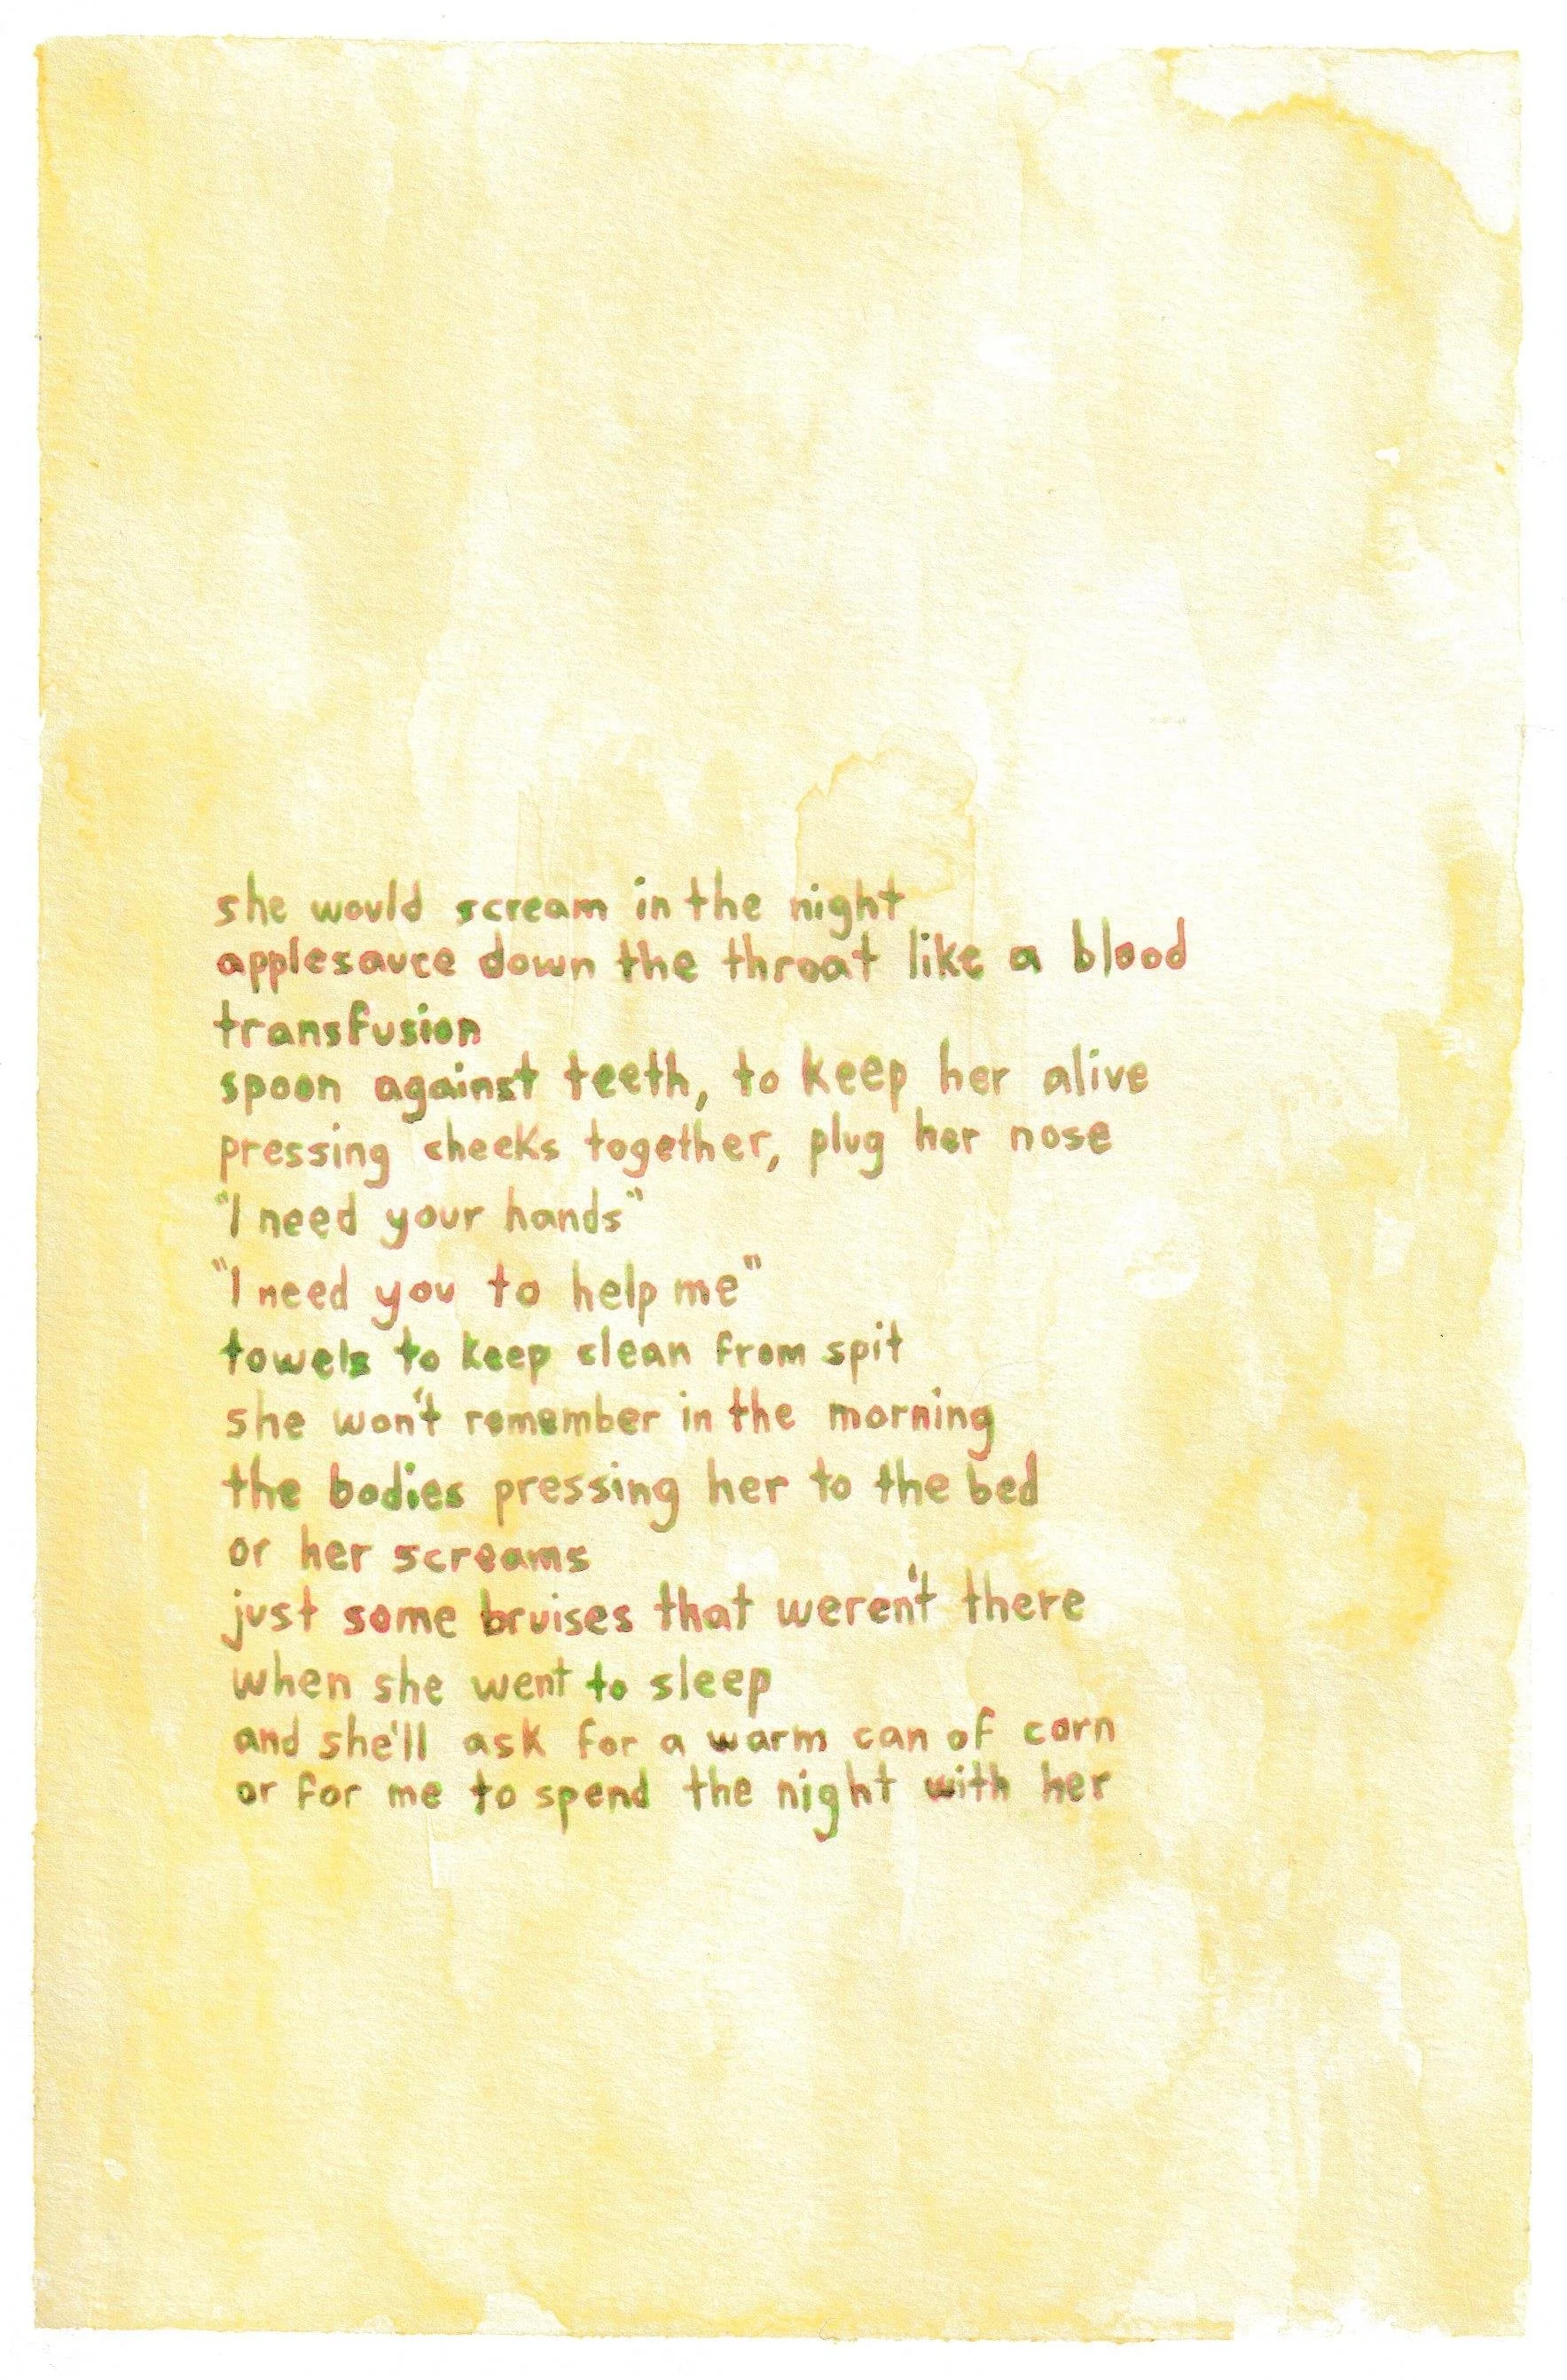 she would scream in the night
applesauce down the throat like a blood
transfusion
spoon against teeth, to keep her alive
pressing cheeks together, plug her nose
"I need your hands"
"I need you to help me"
towels to keep clean from spit
she won't remember in the morning
the bodies pressing her to the bed
or her screams
just some bruises that weren't there
when she went to sleep
and she'll ask for a warm can of corn
or for me to spend the night with her